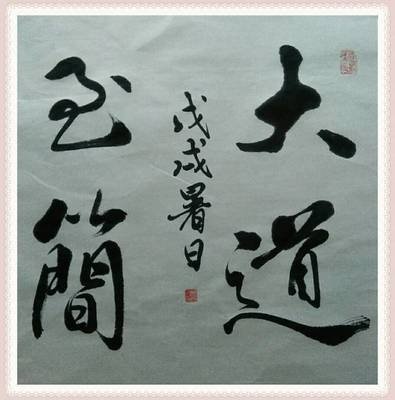 大道
至簡
戊戌暑日